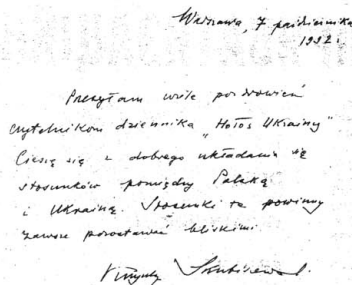 Warszawa, 7 października
1992 r.
Przesyłam wiele pozdrowień
czytelnikom dziennika „Hołos Ukrainy"
Cieszę się z dobrego układania się
stosunków pomiędzy Polską
i Ukrainą. Stosunki te powinny
zawsze pozostawać bliskimi.
Krzysztof Skubiszewski